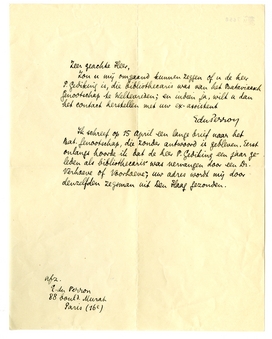 Zeer geachte Heer,
Zou u mij omgaand kunnen zeggen of u de heer
P. Gediking is, die bibliothecaris was van het Bataviaasch
Genootschap te Weltevreden; en indien ja, wilt u dan
het contact herstellen met uw ex-assistent
EduPerron
Ik schreef op 15 april een lange brief naar het
Bat. Genootschap, die zonder antwoord is gebleven. Eerst
onlangs hoorde ik dat de heer P. Gediking een jaar ge-
leden als bibliothecaris was vervangen door een Dr.
Verhoeve of Voorhoeve; uw adres werd mij door
denzelfden zegsman uit Den Haag gezonden.
afz.
E. du Perron
88 boul^d Murat
Paris (16^e)